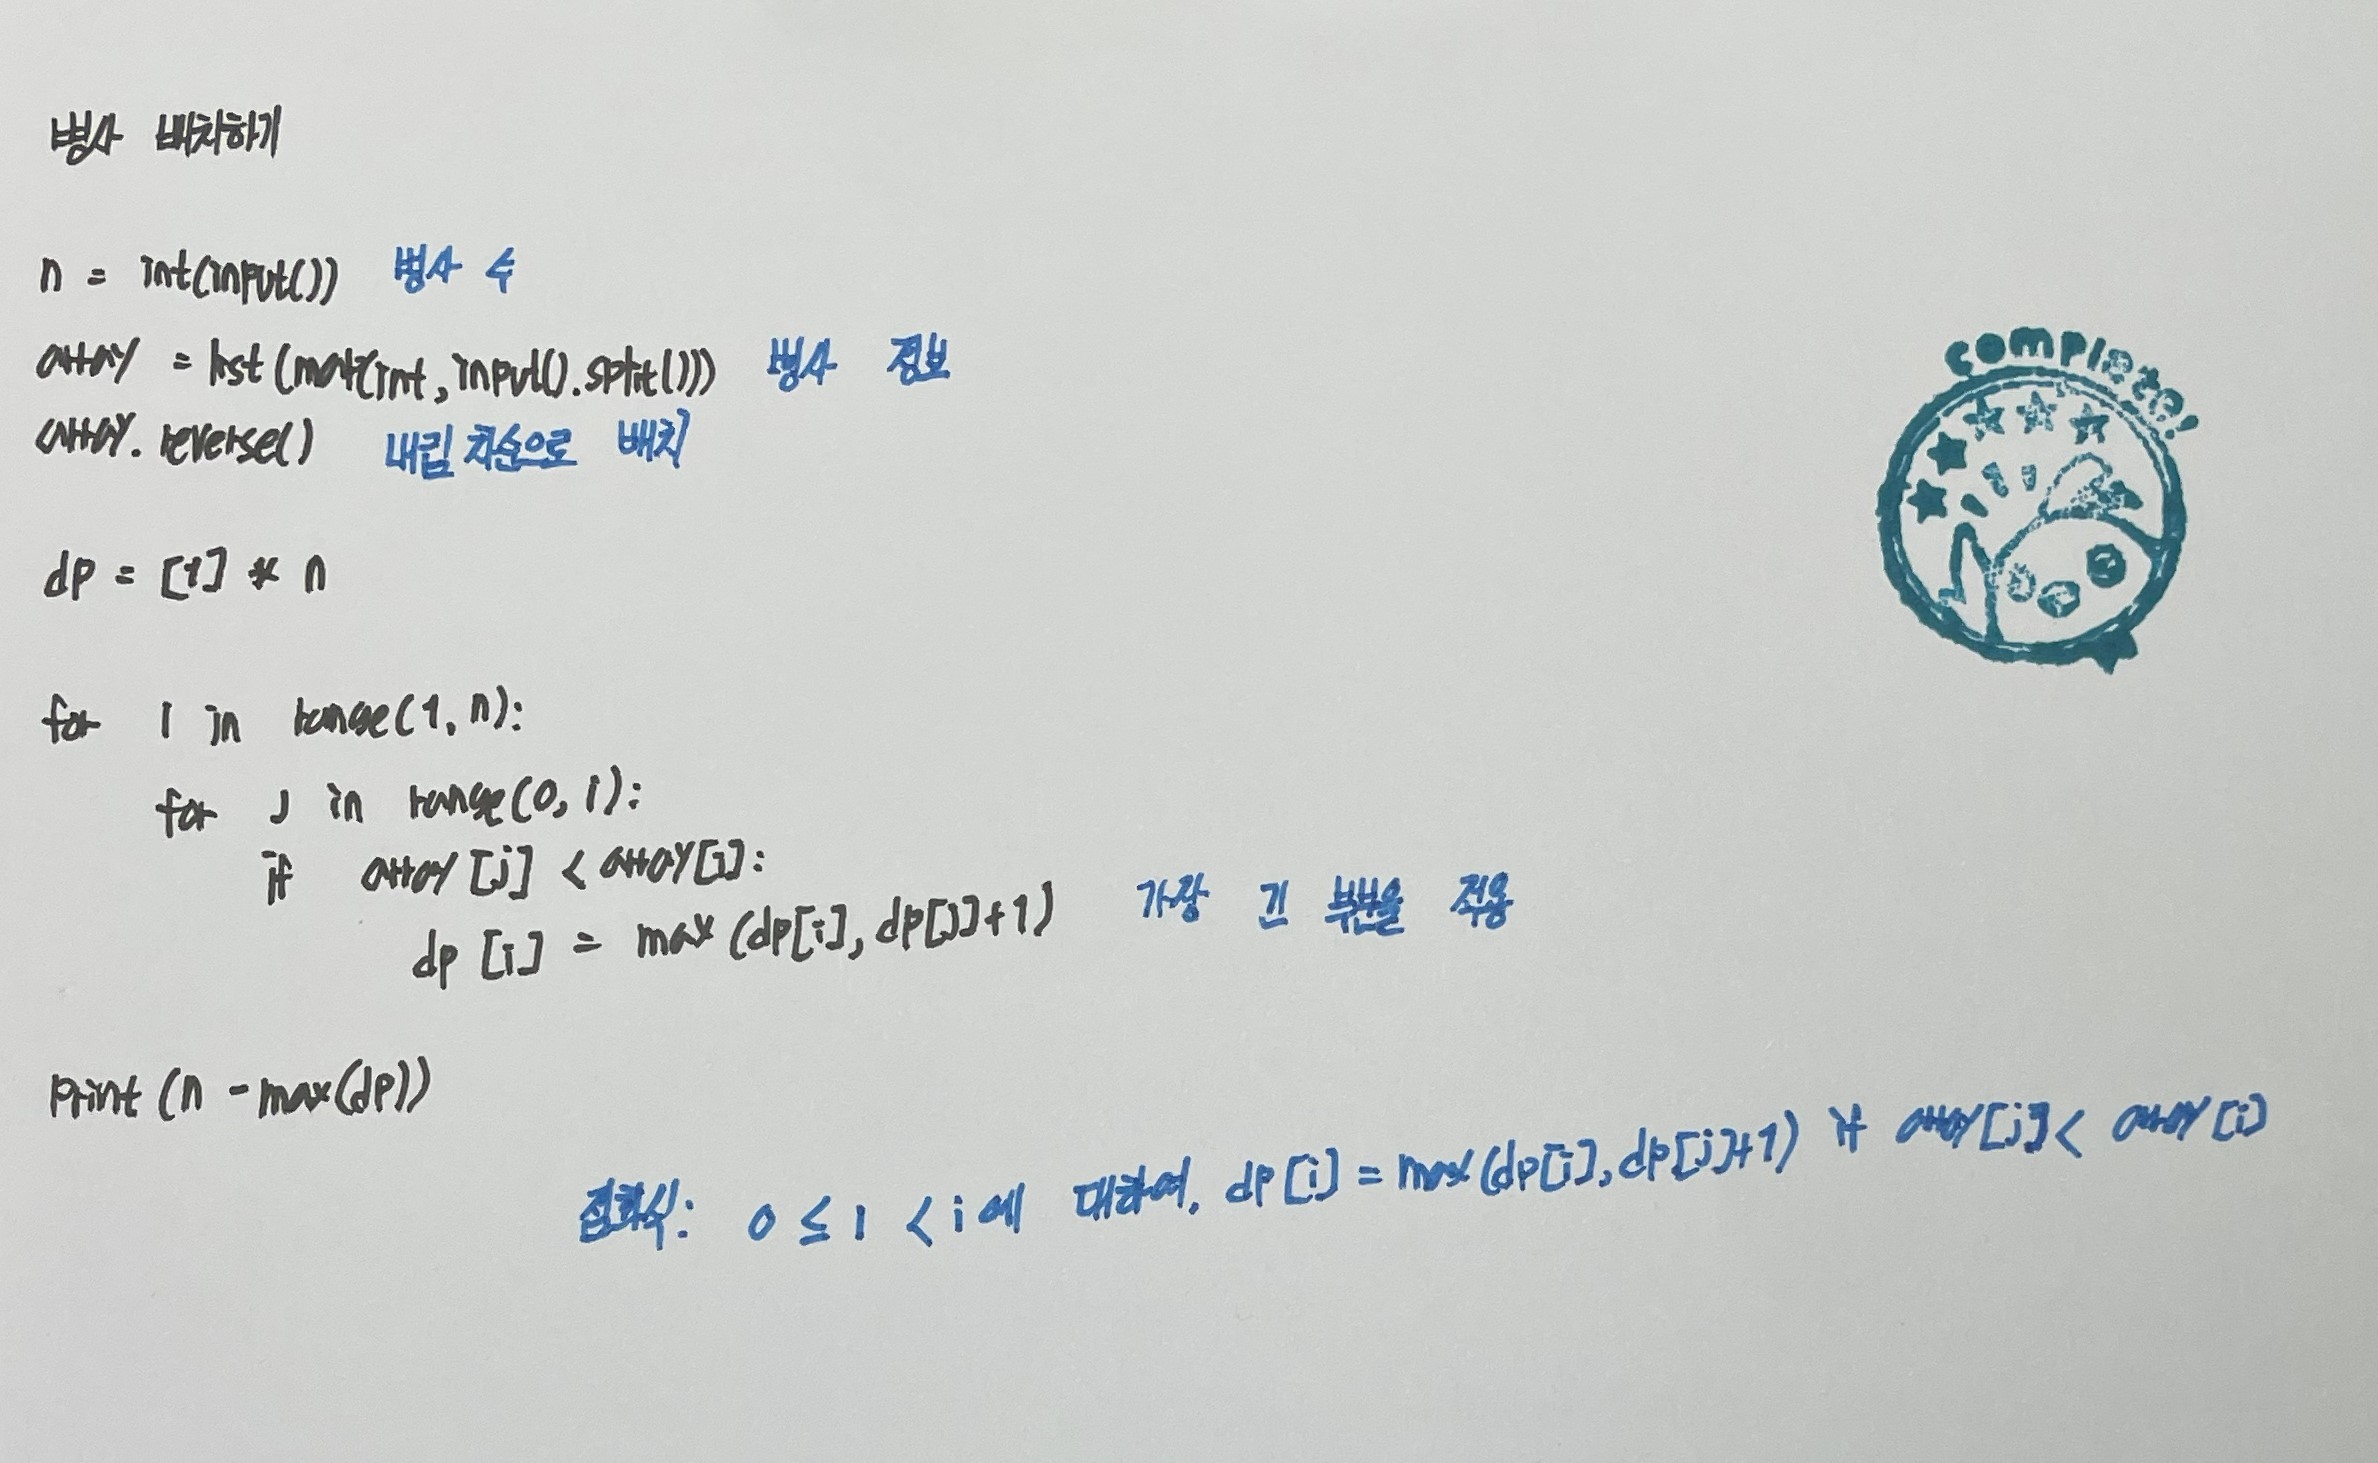 병사 배치하기
n = int(input()) 병사 수
array = list(map(int, input().split())) 병사 정보
array.reverse() 내림 차순으로 배치
complete!
dp = [1] * n
for i in range(1, n):
for j in range(0, i):
if array[j] < array[i]:
dp[i] = max(dp[i], dp[j]+1) 가장 긴 부분을 적용
print(n - max(dp))
점화식: 0 ≤ i < i에 대하여, dp[i] = max(dp[i], dp[j]+1) if array[j] < array[i]